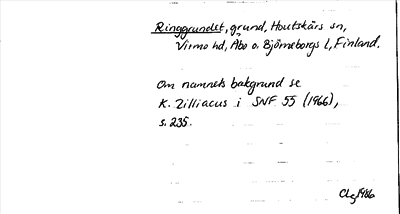 Ringgrundet, grund, Houtskärs sn,
Virmo hd, Åbo o. Björneborgs l, Finland.
Om namnets bakgrund se
K. Zilliacus i SNF 55 (1966),
s. 235.
CLg 1986